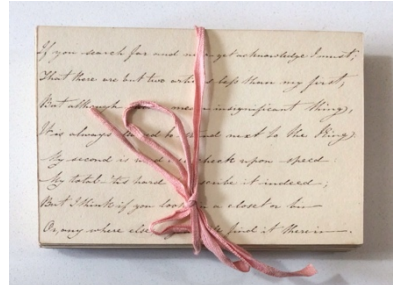 If you search far and near yet acknowledge I must,
That there are but two articles less than my first,
But although mere insignificant thing,
It is always found to stand next to the King,
My second is used as a check upon speed
My total 'tis hard to describe it indeed,
But I think if you look in a closet or
Or, any where else you find it therein